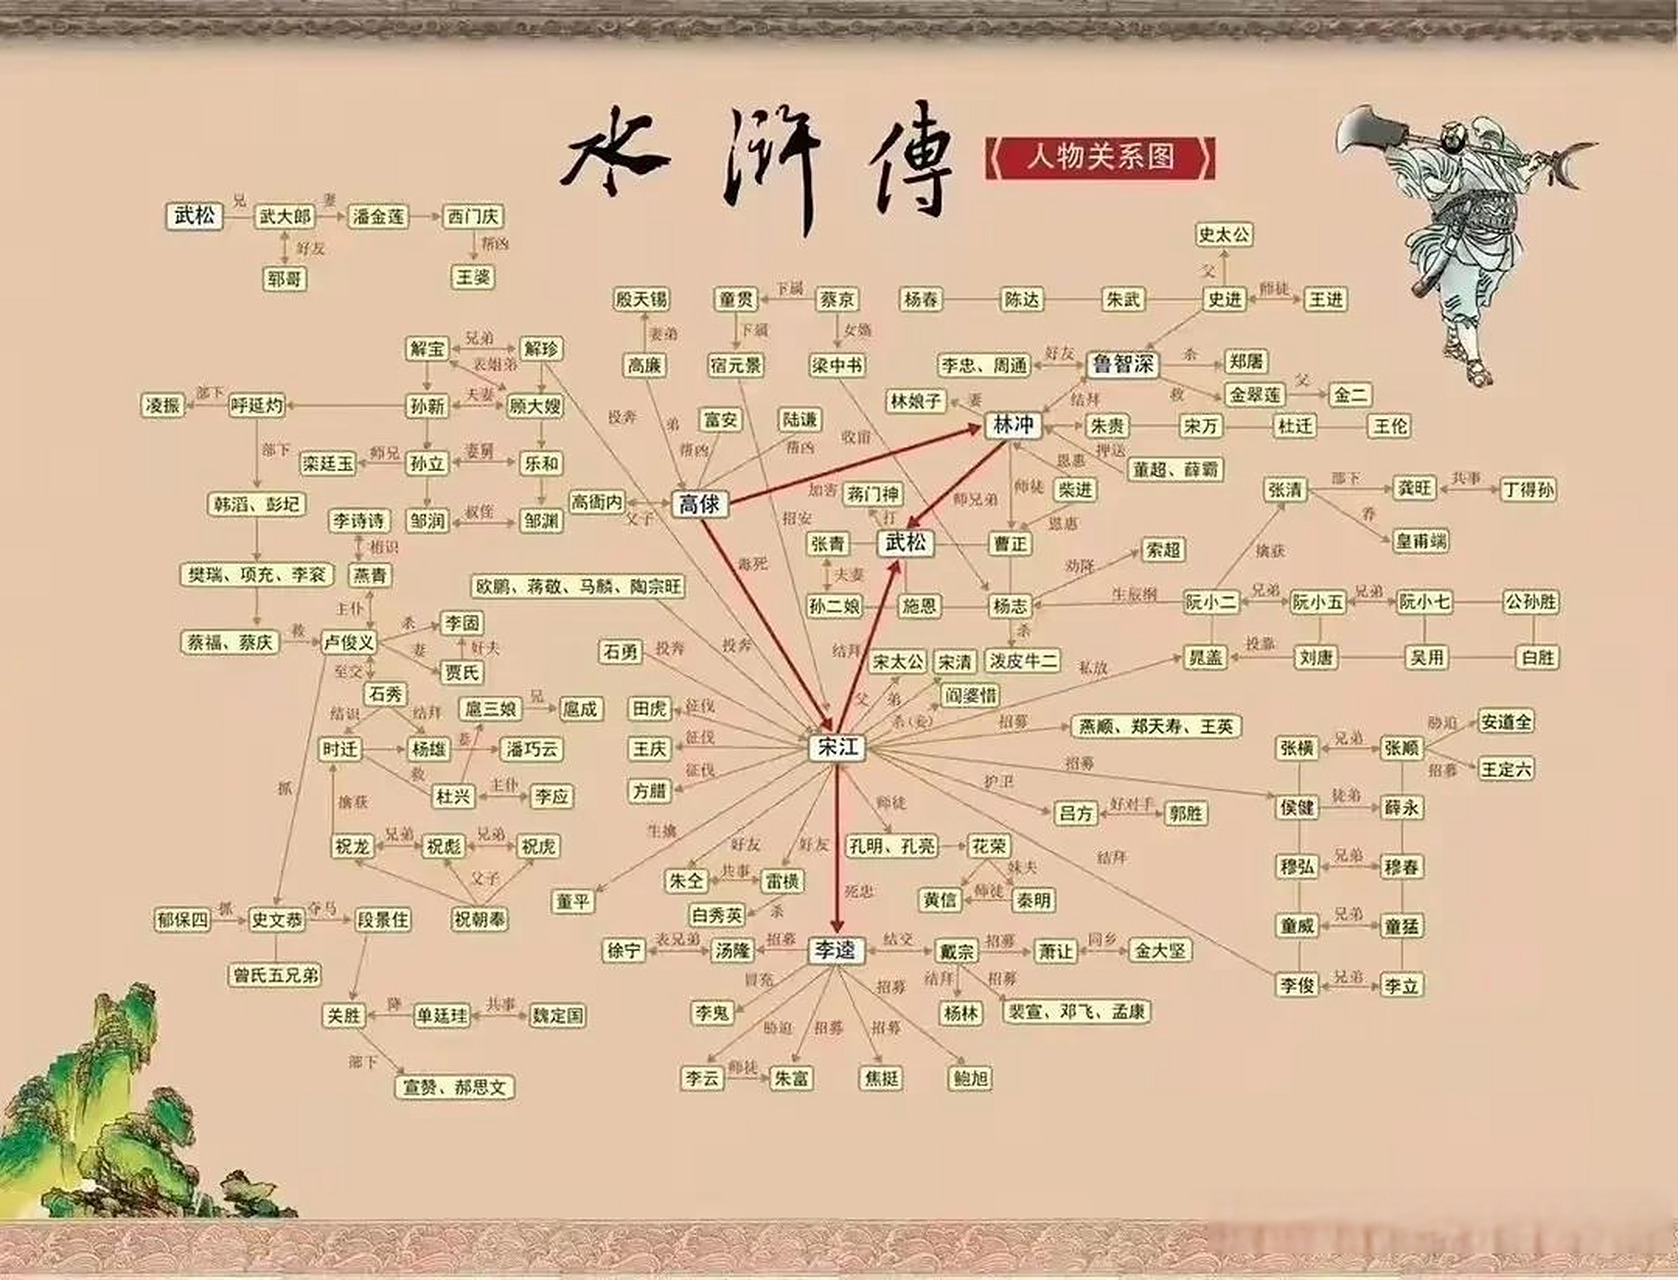 水滸傳
人物关系图
兄 妻
武松 武大郎 潘金莲 西门庆
好友 帮凶
郓哥 王婆
史太公
父
殷天锡 童贯 下属 蔡京 杨春 陈达 朱武 史进 师徒 王进
妻弟 下属 女婿
解宝 兄弟 解珍 高廉 宿元景 梁中书 李忠、周通 好友 鲁智深 杀 郑屠
表姐弟
救 金翠莲 父 金二
凌振 部下 呼延灼 孙新 夫妻 顾大嫂 林娘子 妻 结拜
投奔 弟 富安 陆谦 收留 林冲 朱贵 宋万 杜迁 王伦
帮凶 帮凶
部下 栾廷玉 师兄 孙立 妻舅 乐和 恩惠 押送
董超、薛霸
韩滔、彭玘 高衙内 父子 高俅 加害 蒋门神 师兄弟 师徒 柴进 张清 部下 龚旺 共事 丁得孙
李诗诗 邹润 叔侄 邹渊 招安 打 恩惠 养
相识 张青 武松 曹正 索超 擒获 皇甫端
毒死 劝降
樊瑞、项充、李衮 燕青 欧鹏、蒋敬、马麟、陶宗旺 夫妻
主仆 孙二娘 施恩 杨志 生辰纲 阮小二 兄弟 阮小五 兄弟 阮小七 公孙胜
蔡福、蔡庆 救 卢俊义 杀 李固 杀
妻 奸夫 石勇 投奔 投奔 结拜 宋太公 宋清 泼皮牛二 私放 晁盖 投靠 刘唐 吴用 白胜
至交 贾氏
石秀 父 弟 阎婆惜
结识 结拜 扈三娘 兄 扈成 田虎 征伐 杀(妾) 招募 燕顺、郑天寿、王英
胁迫 安道全
时迁 杨雄 妻 潘巧云 王庆 征伐 宋江 张横 兄弟 张顺
救 招募 招募 王定六
抓 杜兴 主仆 李应 方腊 征伐 护卫
擒获 师徒 吕方 好对手 郭胜 侯健 徒弟 薛永
生擒
祝龙 兄弟 祝彪 兄弟 祝虎 好友 好友 孔明、孔亮 花荣 结拜
父子 朱仝 共事 雷横 妹夫 穆弘 兄弟 穆春
董平 黄信 师徒 秦明
死忠
郁保四 抓 史文恭 夺马 段景住 祝朝奉 白秀英 杀 童威 兄弟 童猛
徐宁 表兄弟 汤隆 招募 李逵 结交 戴宗 招募 萧让 同乡 金大坚
曾氏五兄弟 冒充 招募 结拜 招募 李俊 兄弟 李立
关胜 降 单廷珪 共事 魏定国 李鬼 杨林 裴宣、邓飞、孟康
胁迫 招募 招募
部下
宣赞、郝思文 李云 师徒 朱富 焦挺 鲍旭